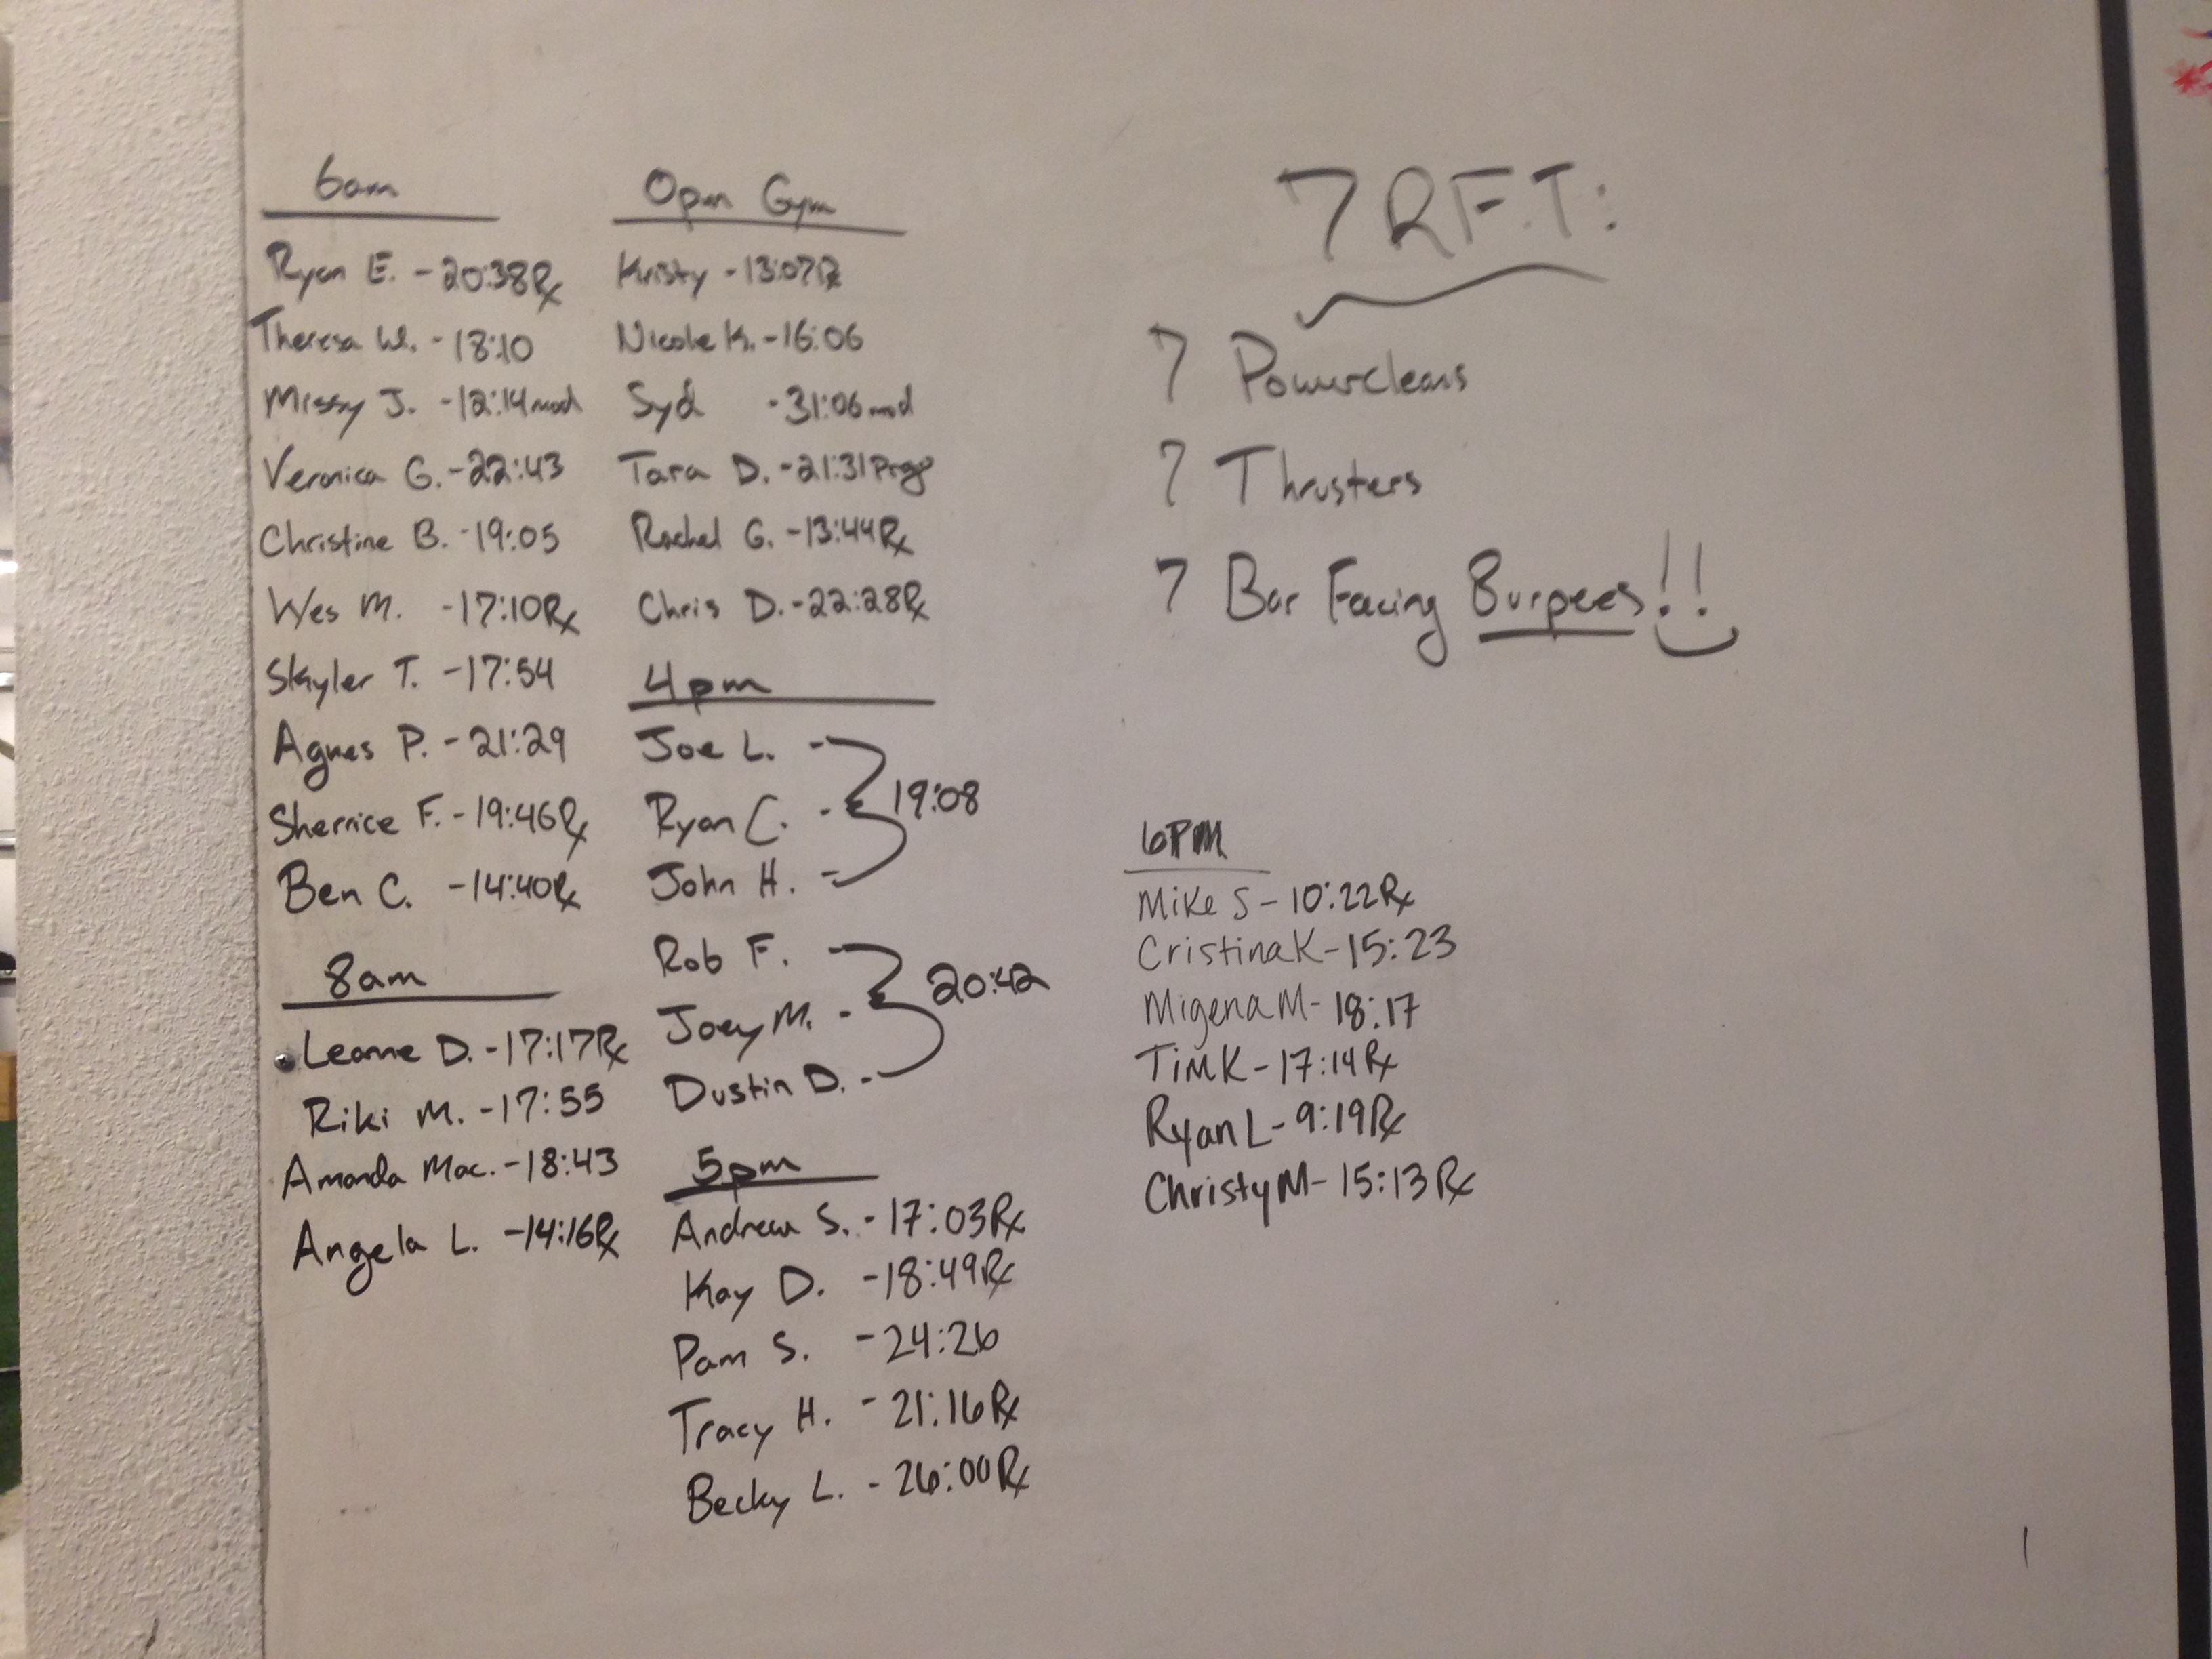 6am
Ryan E. - 20:38Rx
Theresa W. - 18:10
Missy J. - 12:14 mod
Veronica G. - 22:43
Christine B. - 19:05
Wes M. - 17:10Rx
Skyler T. - 17:54
Agnes P. - 21:29
Sherrice F. - 19:46Rx
Ben C. - 14:40Rx
8am
Leanne D. - 17:17Rx
Riki M. - 17:55
Amanda Mac. - 18:43
Angela L. - 14:16Rx
Open Gym
Kristy - 13:07Rx
Nicole K. - 16:06
Syd - 31:06 mod
Tara D. - 21:31 Prgo
Rachel G. - 13:44Rx
Chris D. - 22:28Rx
4pm
Joe L. -
Ryan C. - 19:08
John H. -
Rob F. -
Joey M. - 20:42
Dustin D. -
5pm
Andrew S. - 17:03Rx
Kay D. - 18:49Rx
Pam S. - 24:26
Tracy H. - 21:16Rx
Becky L. - 26:00Rx
7 R.F.T:
7 Powercleans
7 Thrusters
7 Bar Facing Burpees!!
6PM
Mike S - 10:22Rx
Cristina K - 15:23
Migena M - 18:17
Tim K - 17:14Rx
Ryan L - 9:19Rx
Christy M - 15:13Rx